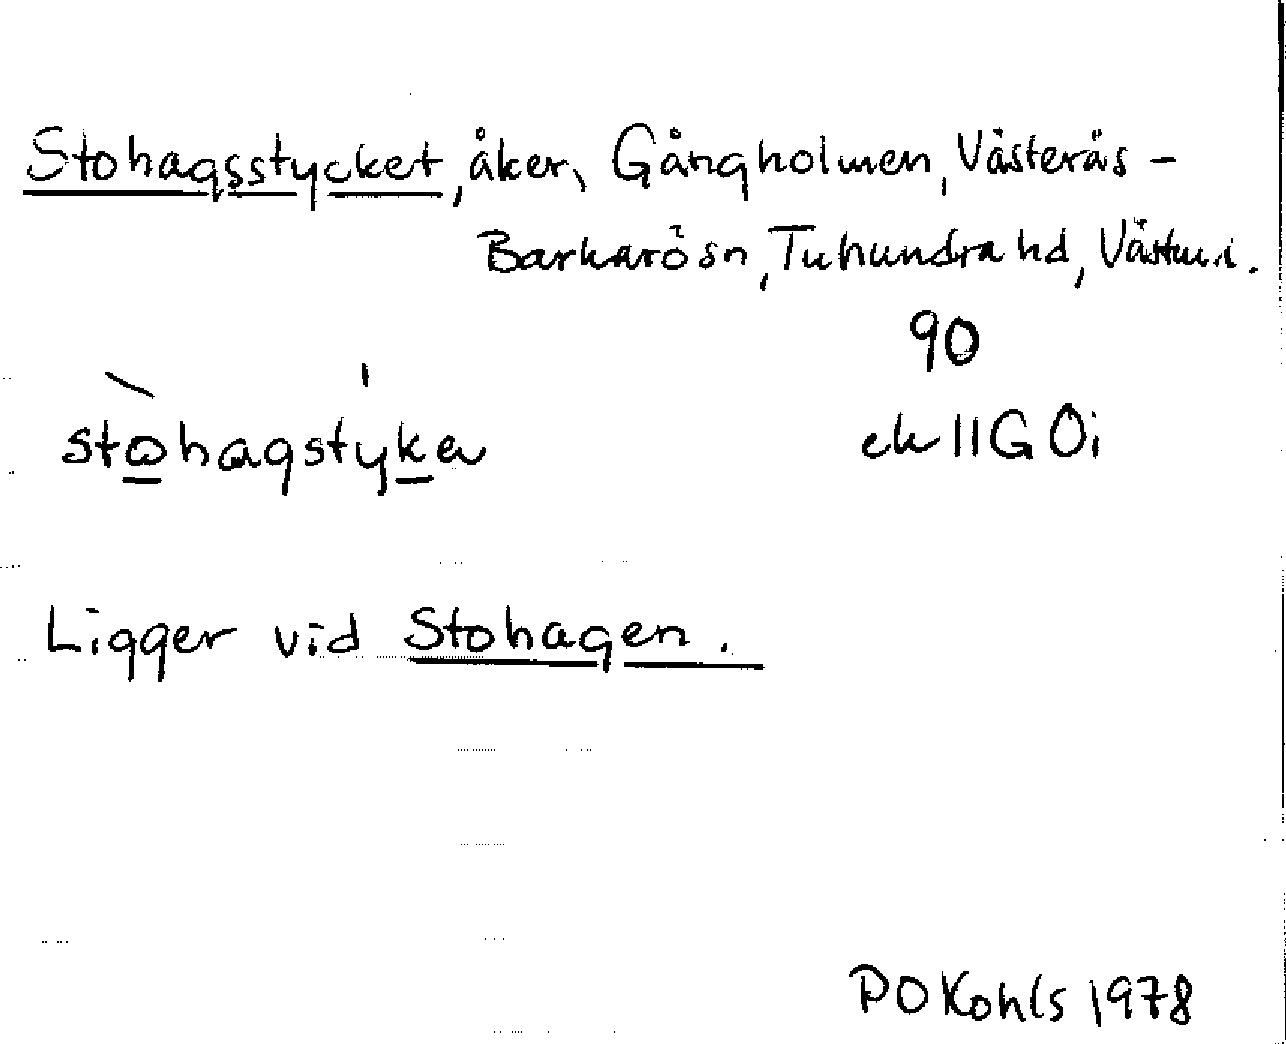 Stohagsstycket, åker, Gångholmen, Västerås -
Barkarö sn, Tuhundra hd, Västm.l.
90
stòhagstýka
ek 11G Oi
Ligger vid Stohagen.
P O Kohls 1978